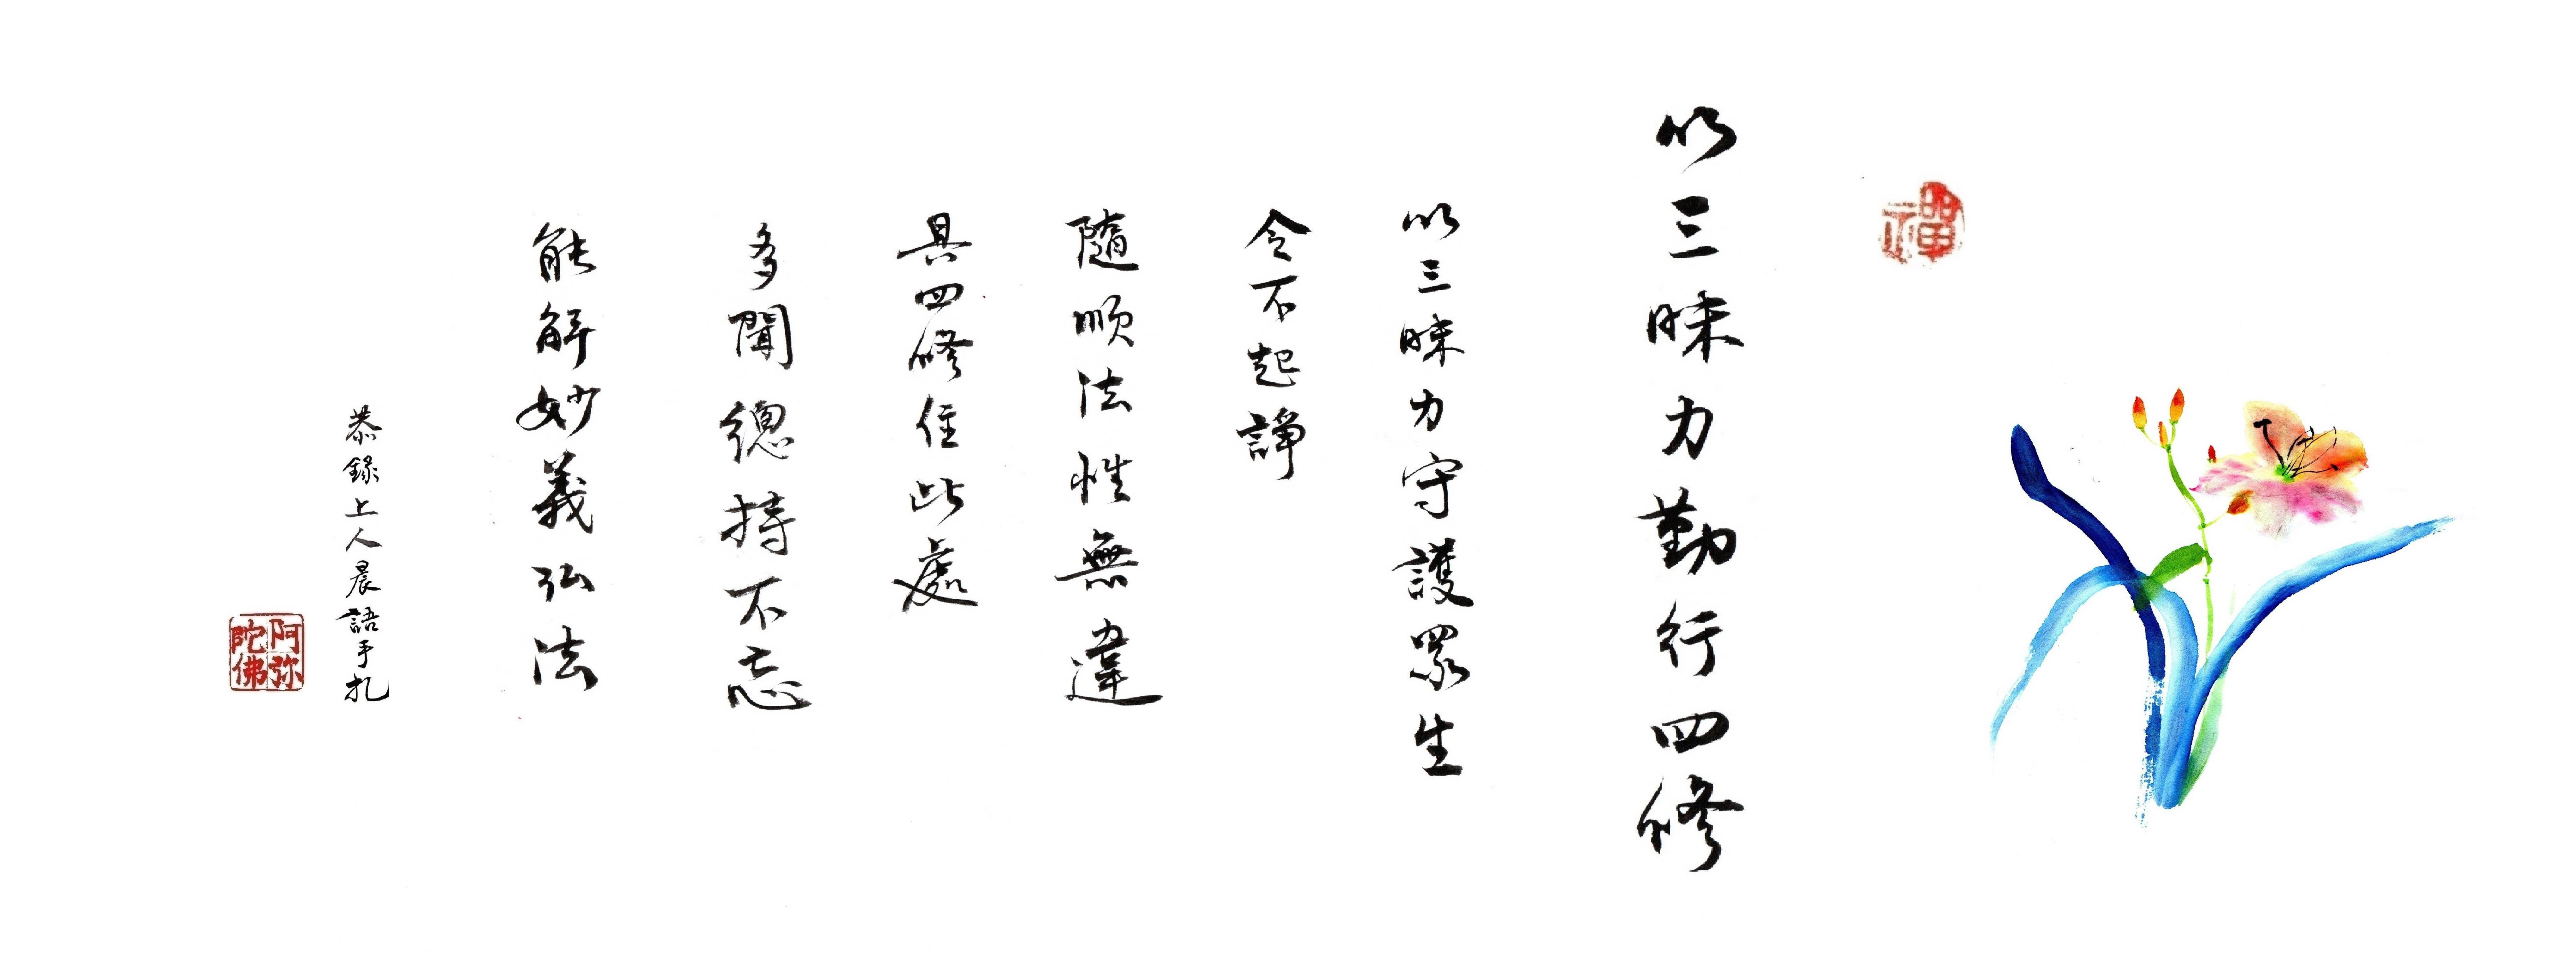 禪
以三昧力勤行四修
以三昧力守護眾生
令不起諍
隨順法性無違
具四修住此處
多聞總持不忘
能解妙義弘法
恭錄上人晨語手札
阿弥陀佛